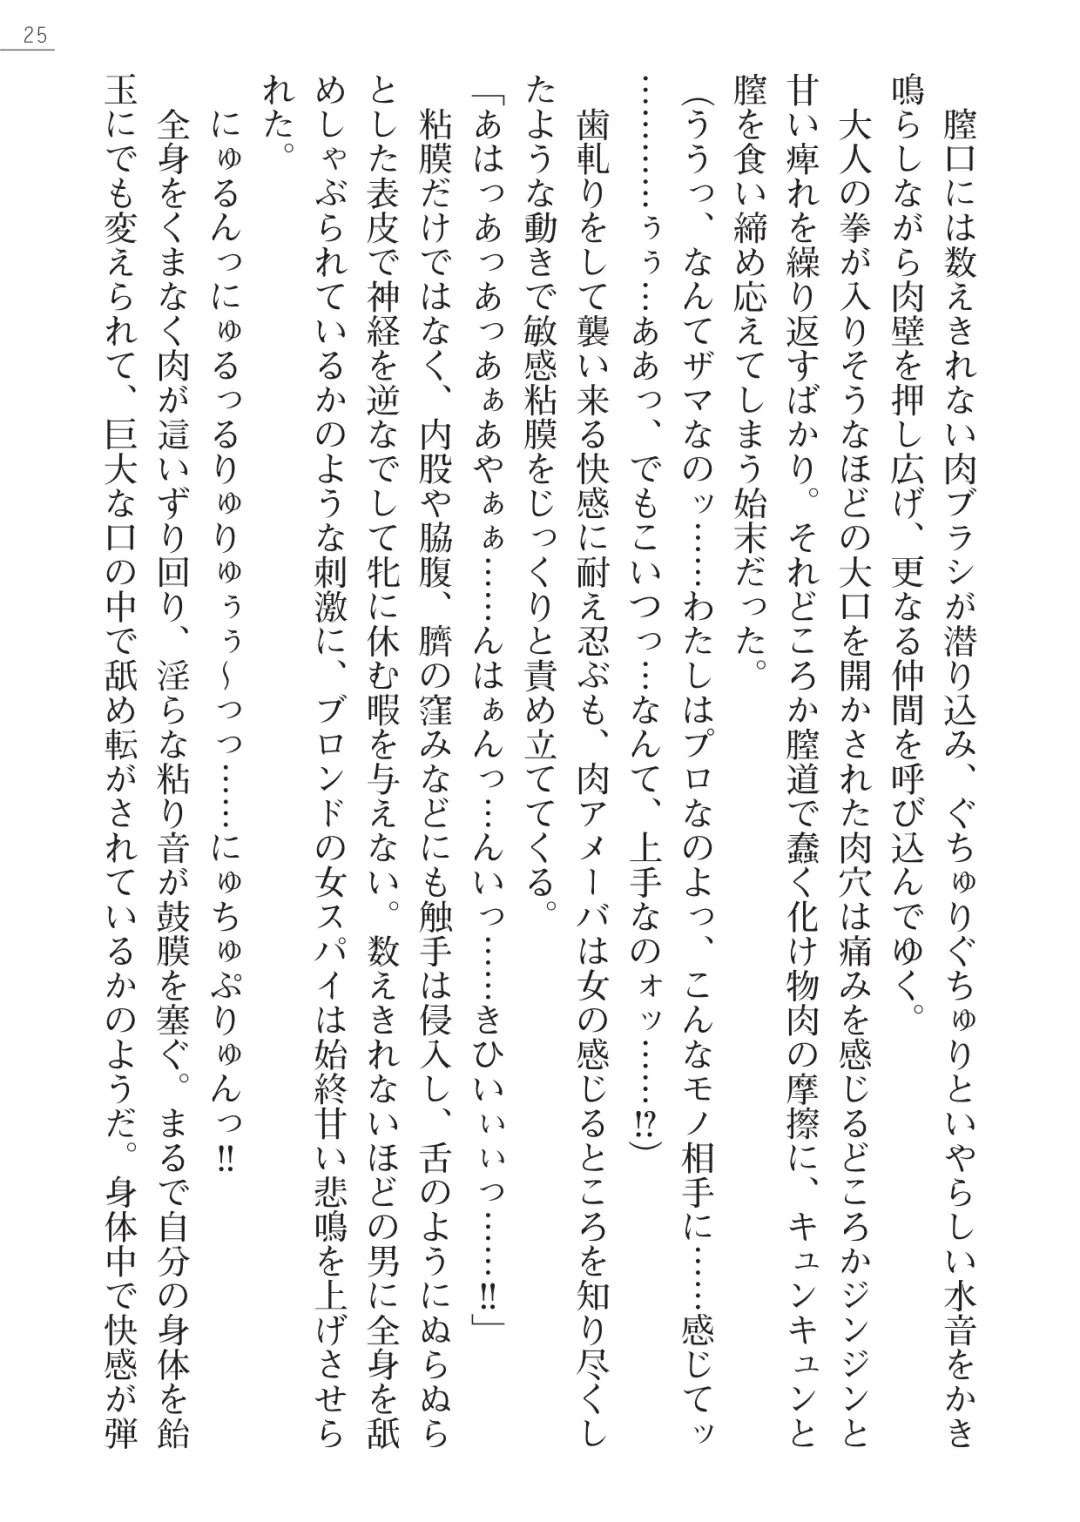 25
膣口には数えきれない肉ブラシが潜り込み、ぐちゅりぐちゅりといやらしい水音をかき
鳴らしながら肉壁を押し広げ、更なる仲間を呼び込んでゆく。
大人の拳が入りそうなほどの大口を開かされた肉穴は痛みを感じるどころかジンジンと
甘い痺れを繰り返すばかり。それどころか膣道で蠢く化け物肉の摩擦に、キュンキュンと
膣を食い締め応えてしまう始末だった。
（ううっ、なんてザマなのッ……わたしはプロなのよっ、こんなモノ相手に……感じてッ
…………ぅぅ…ああっ、でもこいつっ…なんて、上手なのォッ……!?）
歯軋りをして襲い来る快感に耐え忍ぶも、肉アメーバは女の感じるところを知り尽くし
たような動きで敏感粘膜をじっくりと責め立ててくる。
「あはっあっあっあぁあやぁぁ……んはぁんっ…んいっ……きひいぃぃっ……!!」
粘膜だけではなく、内股や脇腹、臍の窪みなどにも触手は侵入し、舌のようにぬらぬら
とした表皮で神経を逆なでして牝に休む暇を与えない。数えきれないほどの男に全身を舐
めしゃぶられているかのような刺激に、ブロンドの女スパイは始終甘い悲鳴を上げさせら
れた。
にゅるんっにゅるっるりゅりゅぅぅ～っっ……にゅちゅぷりゅんっ!!
全身をくまなく肉が這いずり回り、淫らな粘り音が鼓膜を塞ぐ。まるで自分の身体を飴
玉にでも変えられて、巨大な口の中で舐め転がされているかのようだ。身体中で快感が弾